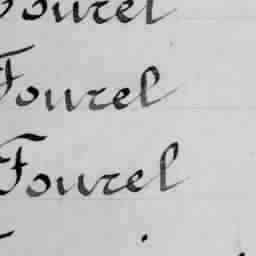 Fourel
Fourel
Fourel